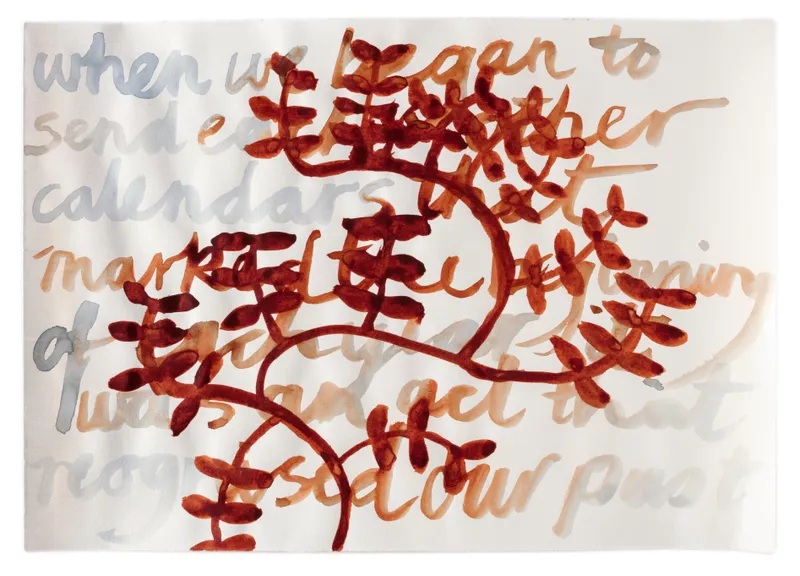 when we began to
send each other
calendars that
marked the beginning
of each year
was an act that
reognised our past